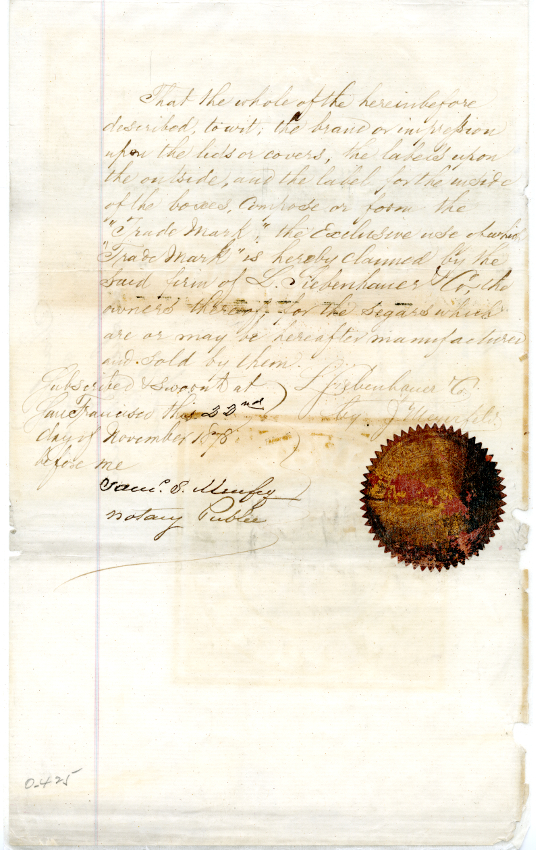 That the whole of the hereinbefore
described, to wit; the brand or impression
upon the lids or covers, the labels upon
the outside, and the label for the inside
of the boxes, compose or form the
"Trade Mark", the Exclusive use of which
"Trade Mark" is hereby claimed by the
said firm of L. & Co, the
owners thereof, for the segars which
are or may be hereafter manufactured
and sold by them.
Subscribed & sworn to at
San Francisco this 22nd
day of November 1878
before me
L. Co
by J.
Saml. S. Murfey
Notary Public
0.425